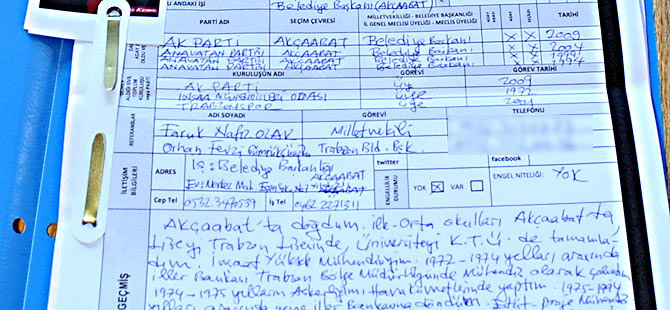 U ANDAKİ İŞİ Belediye Başkanı (AKÇAABAT)
PARTİ ADI SEÇİM ÇEVRESİ MİLLETVEKİLLİĞİ - BELEDİYE BAŞKANLIĞI İL GENEL MECLİSİ ÜYELİĞİ - MECLİS ÜYELİĞİ TARİHİ
AK PARTİ AKÇAABAT Belediye Başkanı X X 2009
ANAVATAN PARTİSİ AKÇAABAT Belediye Başkanı X X
ANAVATAN PARTİSİ AKÇAABAT Belediye Başkanı X X 1994
ANAVATAN PARTİSİ AKÇAABAT Belediye Başkanı
KURULUŞUN ADI GÖREVİ GÖREV TARİHİ
AK PARTİ Üye 2009
İNŞAAT MÜHENDİSLERİ ODASI Üye 1972
TRABZONSPOR Üye
REFERANSLAR ADI SOYADI GÖREVİ TELEFONU
Faruk Nafız OLAK Milletvekili
Orhan Fevzi Gümrükçüoğlu Trabzon Bld. Bşk.
İLETİŞİM BİLGİLERİ ADRES İş: Belediye Başkanlığı AKÇAABAT twitter facebook
Ev: Merkez Mah. ENGELLİLİK DURUMU YOK X VAR ENGEL NİTELİĞİ: YOK
Cep Tel İş Tel 0462 2271311
GEÇMİŞ
Akçaabat'ta doğdum. ilk-Orta okulları Akçaabat'ta,
Liseyi Trabzon Lisesinde, Üniversiteyi K.T.Ü. de tamamla-
dım. İnşaat Yüksek Mühendisiyim. 1972-1974 yılları arasında
iller Bankası Trabzon Bölge Müdürlüğünde Mühendis olarak çalıştım
1974-1975 yıllarım Askerliğimi Hava Kuvvetlerinde yaptım. 1975-1994
yılları arasında yine iller Bankasına döndüm. Etüt-proje Mühendisi